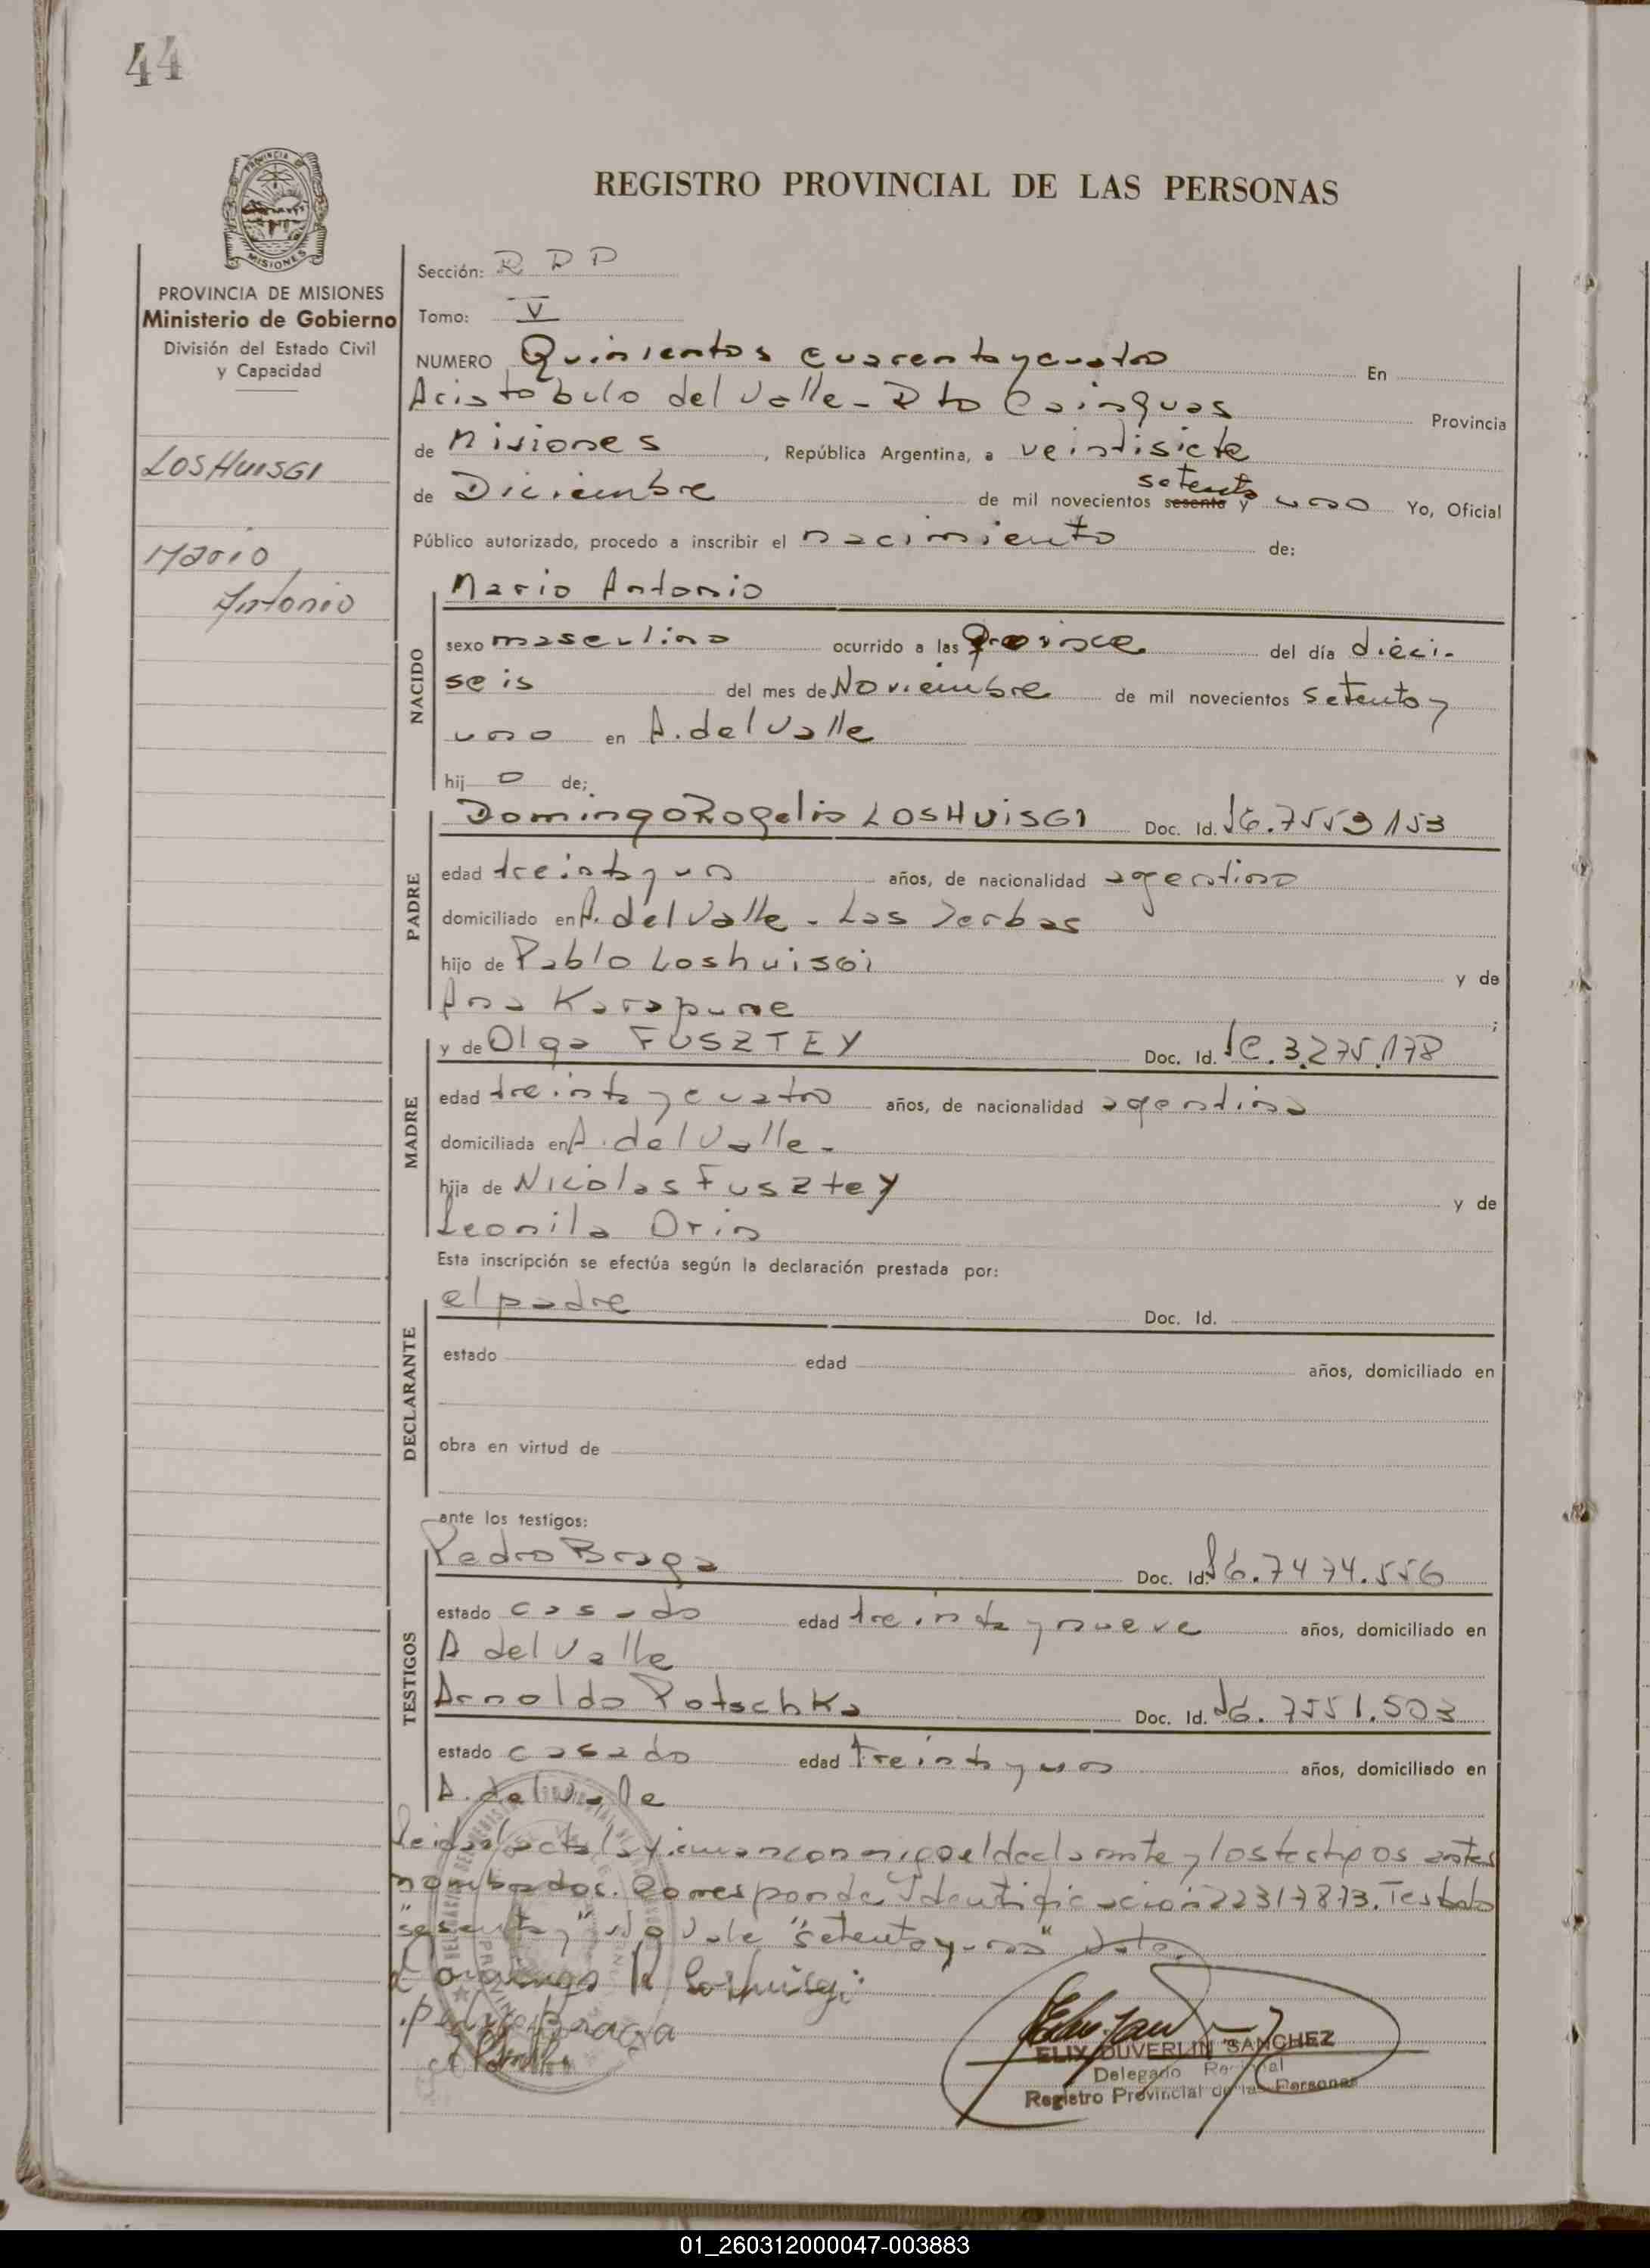 44
PROVINCIA DE
MISIONES
REGISTRO PROVINCIAL DE LAS PERSONAS
PROVINCIA DE MISIONES
Ministerio de Gobierno
División del Estado Civil
y Capacidad
LOSHUISGI
Mario
Antonio
Sección: R D P
Tomo: V
NUMERO Quinientos cuarenta y cuatro En
Aristobulo del Valle - Dto Cainguas Provincia
de Misiones, República Argentina, a veintisiete
setenta
de Diciembre de mil novecientos sesenta y uno Yo, Oficial
Público autorizado, procedo a inscribir el nacimiento de:
NACIDO
Mario Antonio
sexo masculino ocurrido a las quince del día dieci-
seis del mes de Noviembre de mil novecientos setenta y
uno en A. del Valle
hij o de;
PADRE
Domingo Rogelio LOSHUISGI Doc. Id. 7559153
edad treinta y un años, de nacionalidad agentino
domiciliado en A. del Valle - Las Yerbas
hijo de Pablo Loshuisgi y de
Ana Karapune ;
MADRE
y de Olga FUSZTEY Doc. Id. 3.275.178
edad treinta y cuatro años, de nacionalidad agentina
domiciliada en A. del Valle -
hija de Nicolas Fusztey y de
Leonila Orin
Esta inscripción se efectúa según la declaración prestada por:
DECLARANTE
el padre Doc. Id.
estado edad años, domiciliado en
obra en virtud de
ante los testigos:
TESTIGOS
Pedro Braga Doc. Id. 7474.556
estado casado edad treinta y nueve años, domiciliado en
A del Valle
Arnoldo Potschka Doc. Id. 7551.503
estado casado edad treinta y un años, domiciliado en
A. del Valle
Leida el acta la firman conmigo el declarante y los testigos antes
nombrados. Corresponde Identificación 22317873. Testado
"sesenta y" No Vale "setenta y uno" Vale.
Domingo R Loshuisgi
Pedro Braga
ELIX DUVERLIN SANCHEZ
Delegado
Registro Provincial de las Personas
01_260312000047-003883